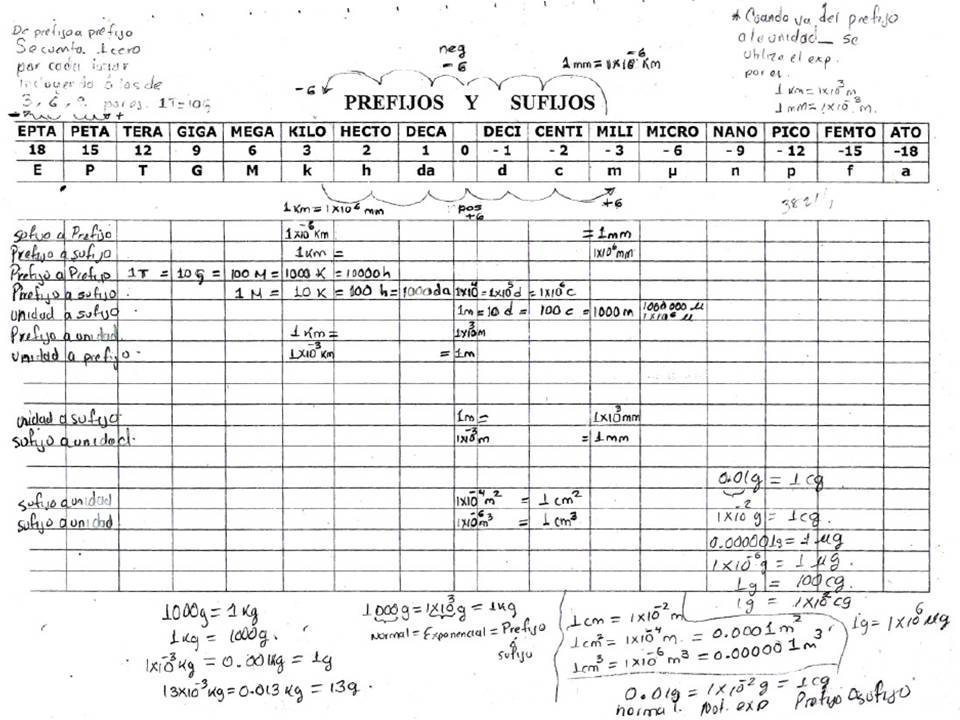 De prefijo a prefijo
Se cuenta 1 cero
por cada lugar
incluyendo a los de
3, 6, 9 por es. 1T=10G
- +
neg
-6
-6
1mm = 1x10⁻⁶ Km
* Cuando va del prefijo
a la unidad se
utiliza el exp.
por es.
1 Km = 1x10³ m
1 mm = 1x10⁻³ m.
PREFIJOS Y SUFIJOS
EPTA PETA TERA GIGA MEGA KILO HECTO DECA DECI CENTI MILI MICRO NANO PICO FEMTO ATO
18 15 12 9 6 3 2 1 0 - 1 - 2 - 3 - 6 - 9 - 12 -15 -18
E P T G M k h da d c m μ n p f a
1Km = 1x10⁶ mm
pos
+6
+6
3821/1
sufijo a Prefijo 1x10⁻⁶ Km = 1mm
Prefijo a sufijo 1Km = 1x10⁶ mm
Prefijo a Prefijo 1T = 10g = 100 M = 1000 K = 10000h
Prefijo a sufijo. 1 M = 10 K = 100 h = 1000da 1x10⁴ = 1x10⁵ d = 1x10⁶ c
unidad a sufijo 1m = 10 d = 100 c = 1000 m 1000000 μ
1x10⁶ μ
Prefijo a unidad. 1 Km = 1x10³ m
unidad a prefijo. 1x10⁻³ Km = 1m
unidad a sufijo 1m = 1x10³ mm
sufijo a unidad. 1x10⁻³ m = 1mm
0.01g = 1 cg
sufijo a unidad 1x10⁻⁴ m² = 1cm²
sufijo a unidad 1x10⁻⁶ m³ = 1cm³
1x10⁻² g = 1cg.
0.000001g = 1 μg
1x10⁻⁶ g = 1 μg.
1g = 100cg.
1g = 1x10² cg
1g = 1x10⁶ μg
1000g = 1 Kg
1 Kg = 1000g.
1x10⁻³ Kg = 0.001Kg = 1g
13x10⁻³ Kg = 0.013 Kg = 13g.
1000g = 1x10³ g = 1Kg
Normal = Exponencial = Prefijo
ó
sufijo
1cm = 1x10⁻² m
1cm² = 1x10⁻⁴ m. = 0.0001m²
1cm³ = 1x10⁻⁶ m³ = 0.000001m³
0.01g = 1x10⁻² g = 1cg
normal. Not. exp Prefijo ó sufijo